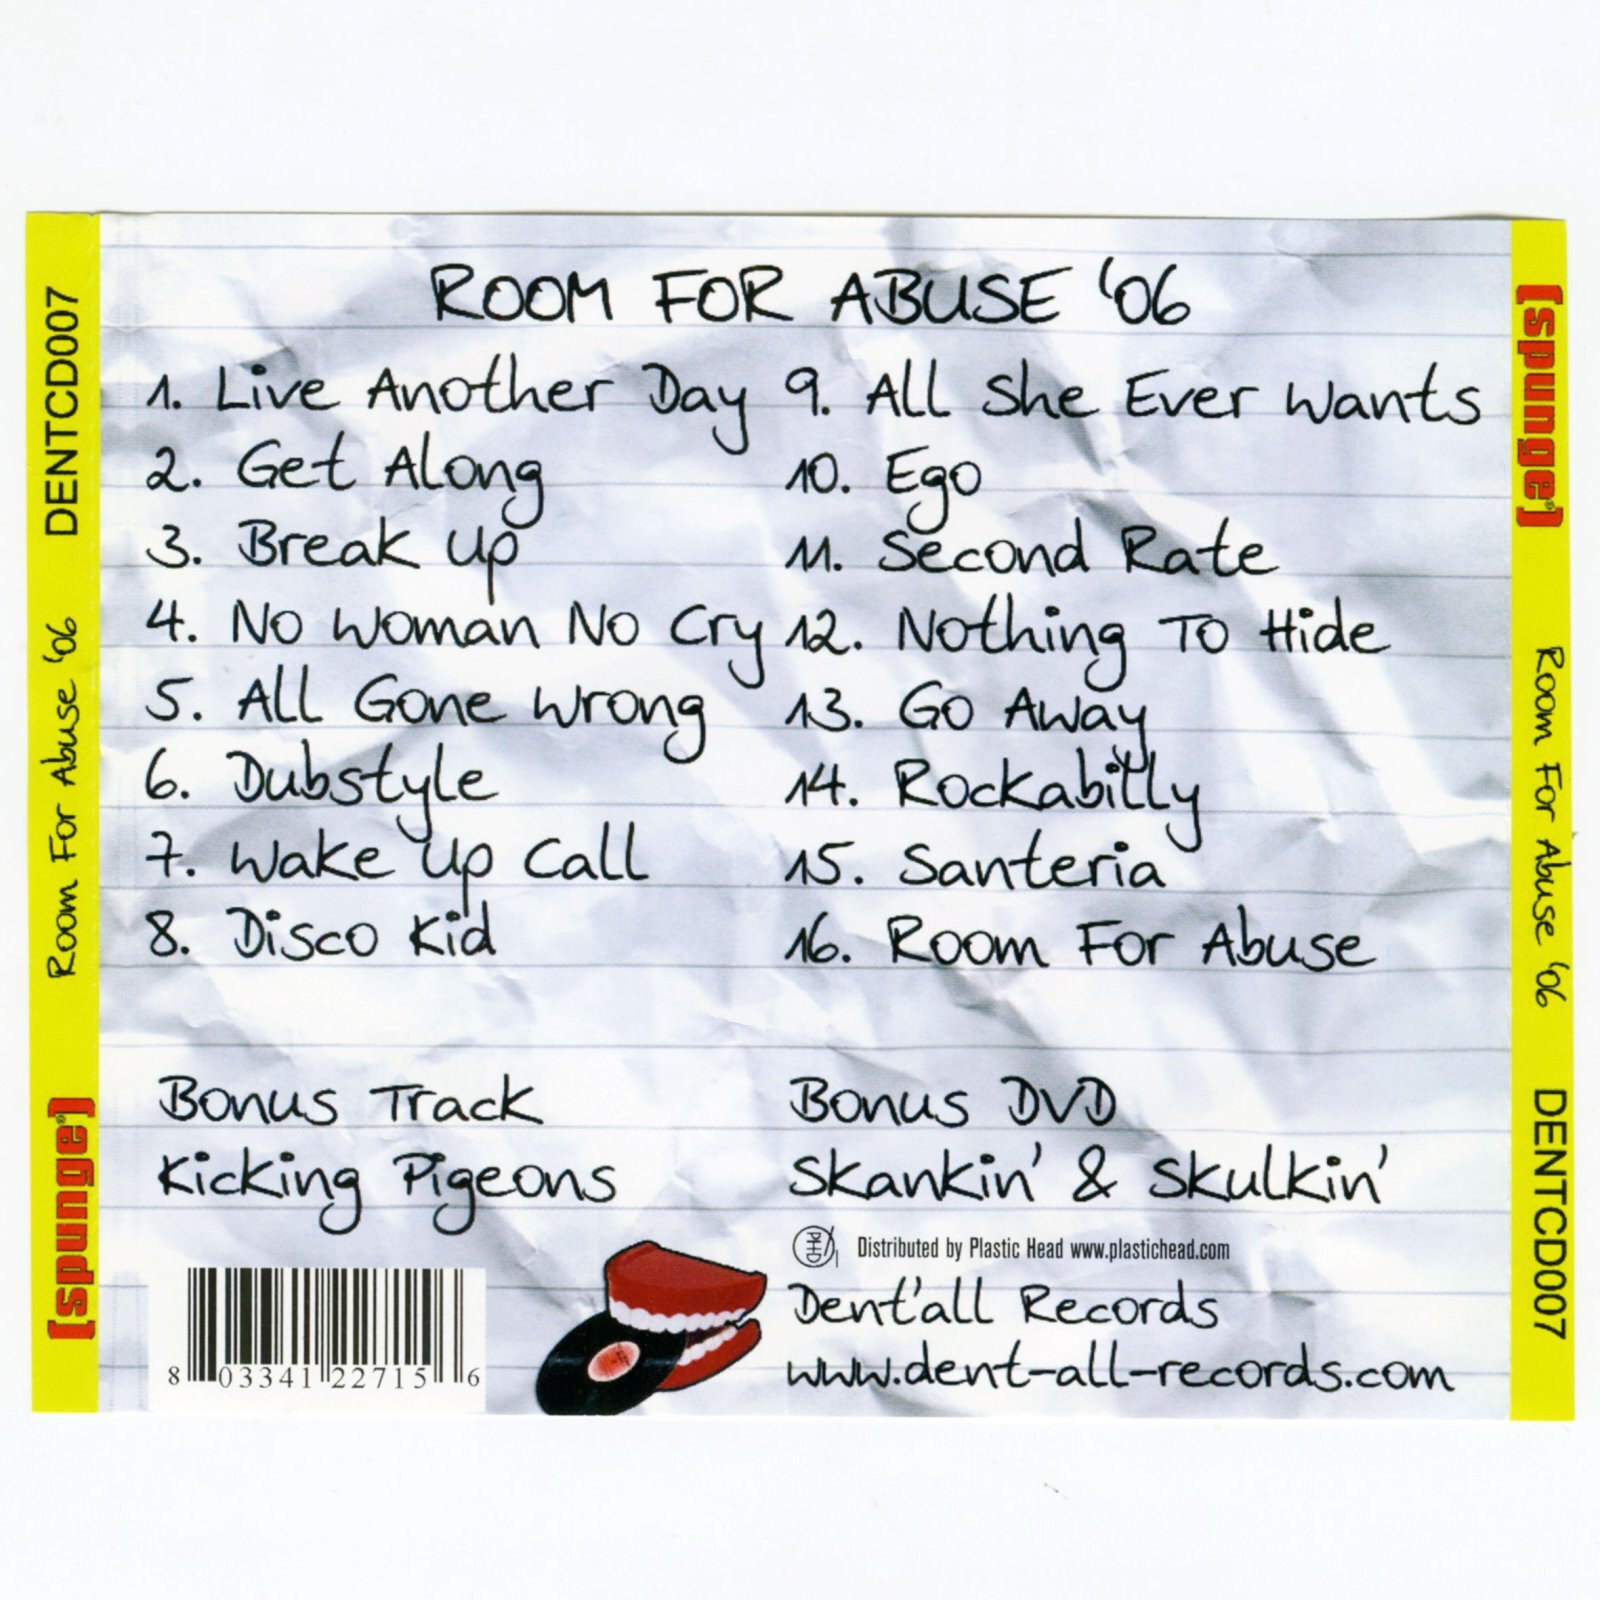 DENTCD007
Room For Abuse '06
[spunge]
ROOM FOR ABUSE '06
1. Live Another Day
2. Get Along
3. Break Up
4. No Woman No Cry
5. All Gone Wrong
6. Dubstyle
7. Wake Up Call
8. Disco Kid
9. All She Ever Wants
10. Ego
11. Second Rate
12. Nothing To Hide
13. Go Away
14. Rockabilly
15. Santeria
16. Room For Abuse
Bonus Track
Kicking Pigeons
Bonus DVD
Skankin' & Skulkin'
PHD
Distributed by Plastic Head www.plastichead.com
Dent'all Records
www.dent-all-records.com
8 03341 22715 6
[spunge]
Room For Abuse '06
DENTCD007